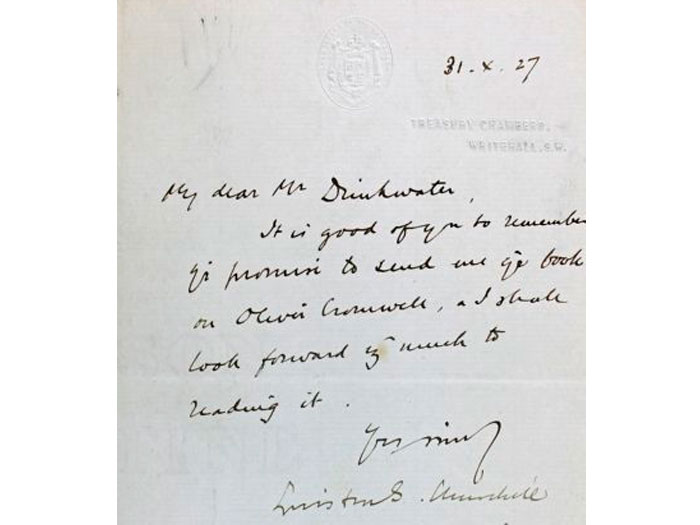 31.X.27
TREASURY CHAMBERS,
WHITEHALL. S.W.
My dear Mr Drinkwater,
It is good of yu to remember
yr promise to send me yr book
on Oliver Cromwell, & I shall
look forward vy much to
reading it.
Yrs sincly
Winston S. Churchill